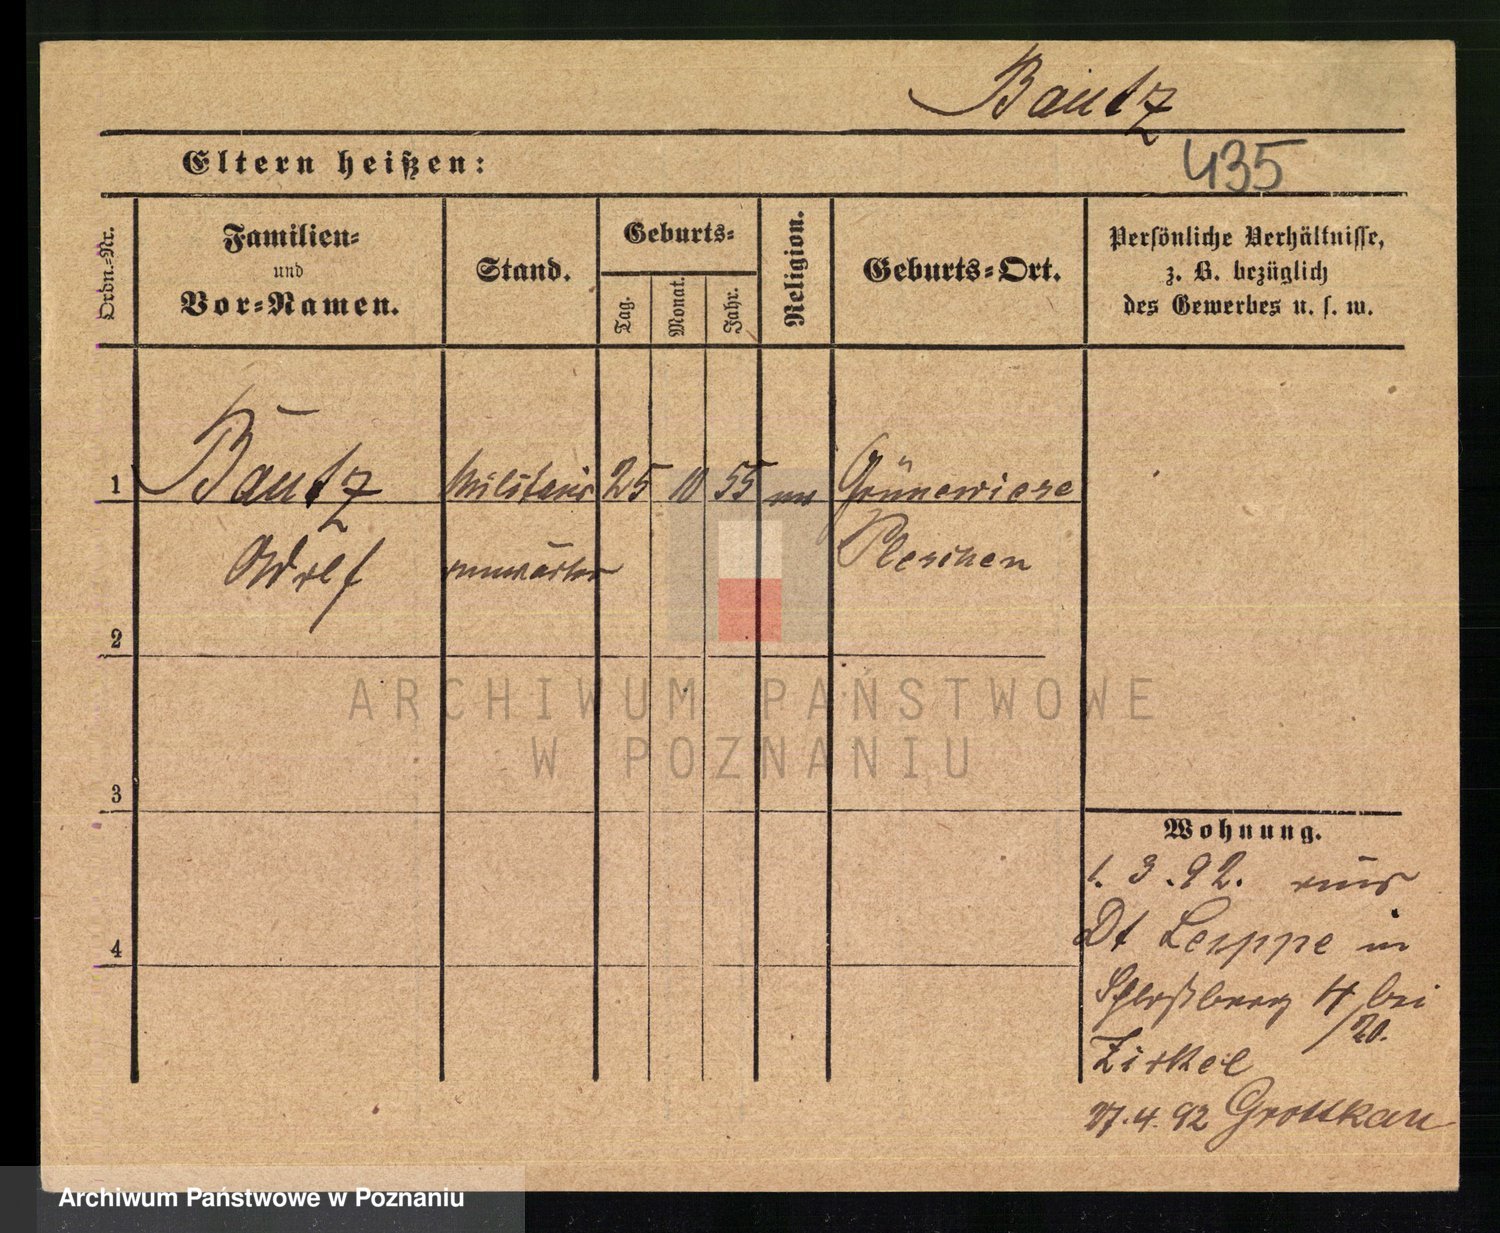 Bautz
435
Eltern heißen:
Ordn.-Nr.
Familien-
und
Vor-Namen.
Stand.
Geburts-
Tag.
Monat.
Jahr.
Religion.
Geburts-Ort.
Persönliche Verhältnisse,
z. B. bezüglich
des Gewerbes u. s. w.
1
Bautz
Militair
25
10
55
Grünewiese
Adolf
anwärter
Pleschen
2
3
4
ARCHIWUM PAŃSTWOWE
W POZNANIU
Wohnung.
1. 3. 92. aus
Dt Leippe in
Schloßberg 4 bei
/20.
Zirkel
27. 4. 92 Grottkau
Archiwum Państwowe w Poznaniu